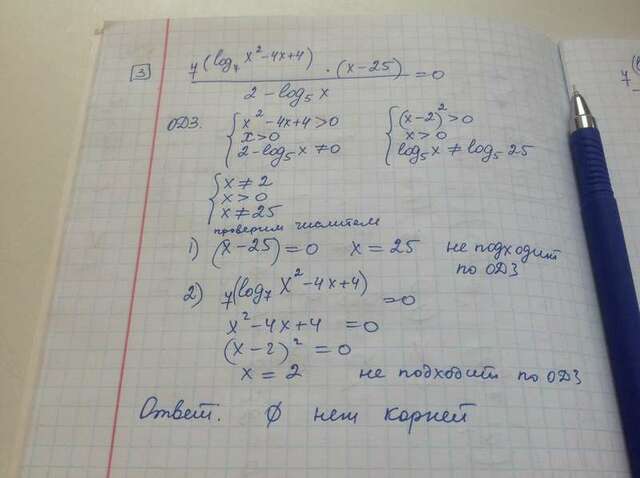 3
7^(log₇ x²-4x+4) · (x-25) / (2-log₅x) = 0
ОДЗ. { x²-4x+4>0 { (x-2)²>0
x>0 x>0
2-log₅x≠0 log₅x≠log₅25
{ x≠2
x>0
x≠25
проверим числители
1) (x-25)=0 x=25 не подходит
по ОДЗ
2) 7^(log₇ x²-4x+4) =0
x²-4x+4 =0
(x-2)² =0
x=2 не подходит по ОДЗ
Ответ. ∅ нет корней